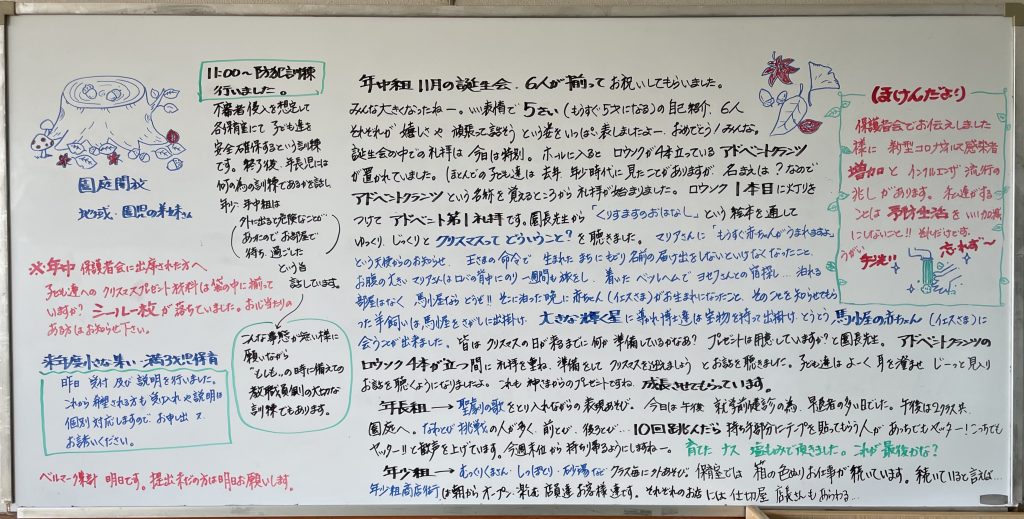 園庭開放
地域・園児の弟妹さん
11:00〜防犯訓練
行いました。
不審者侵入を想定して
各保育室にて 子ども達を
安全確保するという訓練
です。終了後、年長児には
何の為の訓練であるかを話し
年少・年中組は
外に出ると危険なことが
あったのでお部屋で
待ち過ごした
という旨
話しています。
こんな事態が無い様に
願いながら
"もしも"の時に備えての
教職員側の大切な
訓練でもあります。
※年中 保護者会に出席された方へ
子ども達への クリスマスプレゼント材料は袋の中に揃って
いますか? シール一枚が落ちていました。お心当たりの
ある方はお知らせ下さい。
来年度小さな集い・満3児保育
昨日 受付及び説明を行いました。
これから希望される方も受入れや説明は
個別対応しますので お申し出
お誘いください。
ベルマーク集計 明日です。提出未だの方は明日お願いします。
年中組 11月の誕生会。6人が揃ってお祝いしてもらいました。
みんな大きくなったねー。いい表情で 5さい(もうすぐ5才になる)の自己紹介。6人
それぞれが 嬉しさや 頑張って話そう という姿をいっぱい表しましたよー。おめでとう!みんな。
誕生会の中での礼拝は 今日は特別。ホールに入ると ロウソクが4本立っている アドベントクランツ
が置かれていました。(ほとんどの子ども達は 去年 年少時代に見たことがありますが、名まえは?なので
アドベントクランツという名称を覚えるところから礼拝が始まりました。ロウソク 1本目に灯りを
つけて アドベント第1礼拝です。園長先生から「くりすますのおはなし」という絵本を通して
ゆっくり、じっくりと クリスマスって どういうこと? を聴きました。マリアさんに「もうすぐ赤ちゃんがうまれますよ」
という天使からのお知らせ、王さまの命令で 生まれたまちにもどり名前の届け出をしないといけなくなったこと、
お腹の大きいマリアさんはロバの背中にのり一週間も旅をし、着いたベツレヘムで ヨセフさんとの宿探し… 泊れる
部屋はなく 馬小屋ならどうぞ!! そこに泊った晩に赤ちゃん(イエスさま)がお生まれになったこと、そのことを知らせてもら
った羊飼いは馬小屋をさがしに出掛け、大きな輝く星に導れ博士達は宝物を持って出掛け、とうとう 馬小屋の赤ちゃん(イエスさま)に
会うことが出来ました。皆はクリスマスの日が来るまでに何か準備しているかな? プレゼントは用意していますか?と園長先生。アドベントクランツの
ロウソク4本が立つ間に礼拝を重ね、準備をして クリスマスを迎えましょう とお話を聴きました。子ども達は よーく耳を澄ませ じーっと見入り
お話を聴くようになりましたよ。これも神さまからのプレゼントですね。成長させてもらっています。
年長組→聖劇の歌をとり入れながらの表現あそび。今日は午後 就学前健診の為、早退者の多い日でした。午後は2クラス共、
園庭へ。なわとび挑戦の人が多く、前とび、後ろとび… 10回跳んだら 持ち手部分にテープを貼ってもらう人が あっちでもやったー!こっちでも
やったー!!と歓声を上げています。今週末位から持ち帰るようにしますねー。育てた ナス 塩もみで頂きました。これが最後かな?
年少組→むっくりくまさん・しっぽとり・砂場など クラス毎に外あそび。保育室では 箱の色ぬりお仕事が続いています。続いていると言えば…
年少組商店街は朝からオープン・楽しむ 店員達 お客様達です。それぞれのお店には仕切屋 店長さんもあらわる…
ほけんだより
保護者会でお伝えしました
様に 新型コロナウイルス感染者
増加と インフルエンザ流行の
兆しがあります。私達ができる
ことは 予防生活をいい加減
にしないこと!! それだけです。
うがい 手洗い 忘れず〜